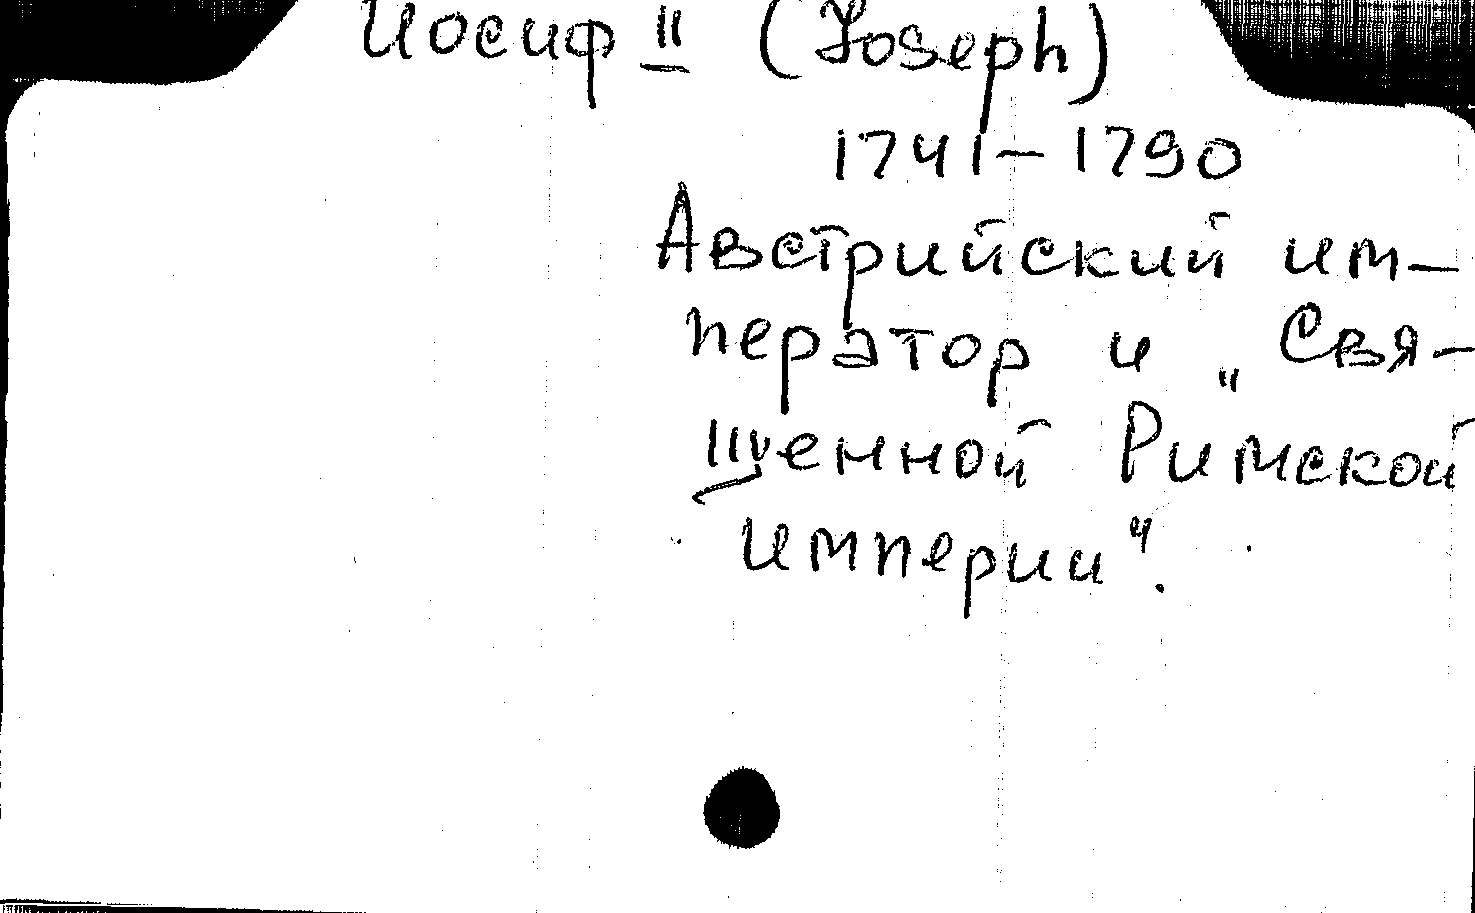 Иосиф II (Joseph)
1741-1790
Австрийский им-
ператор и „Свя-
щенной Римской
империи".